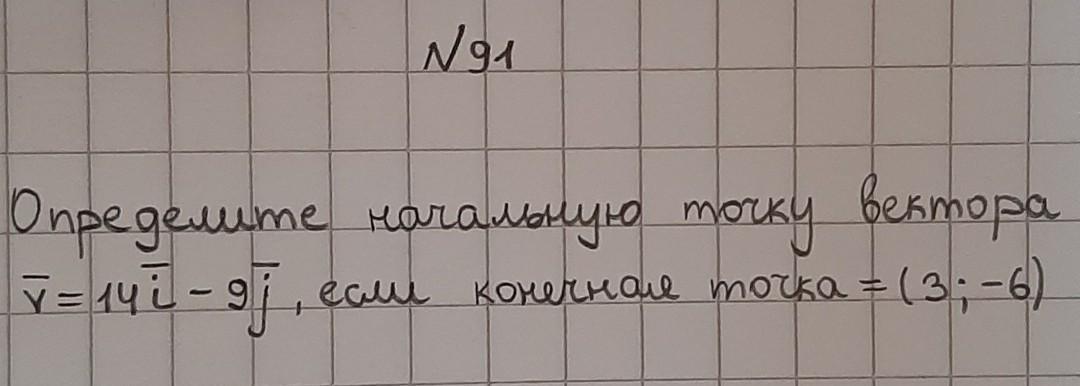 N91
Определите начальную точку вектора
v̅ = 14i̅ - 9j̅, если конечная точка = (3; -6)